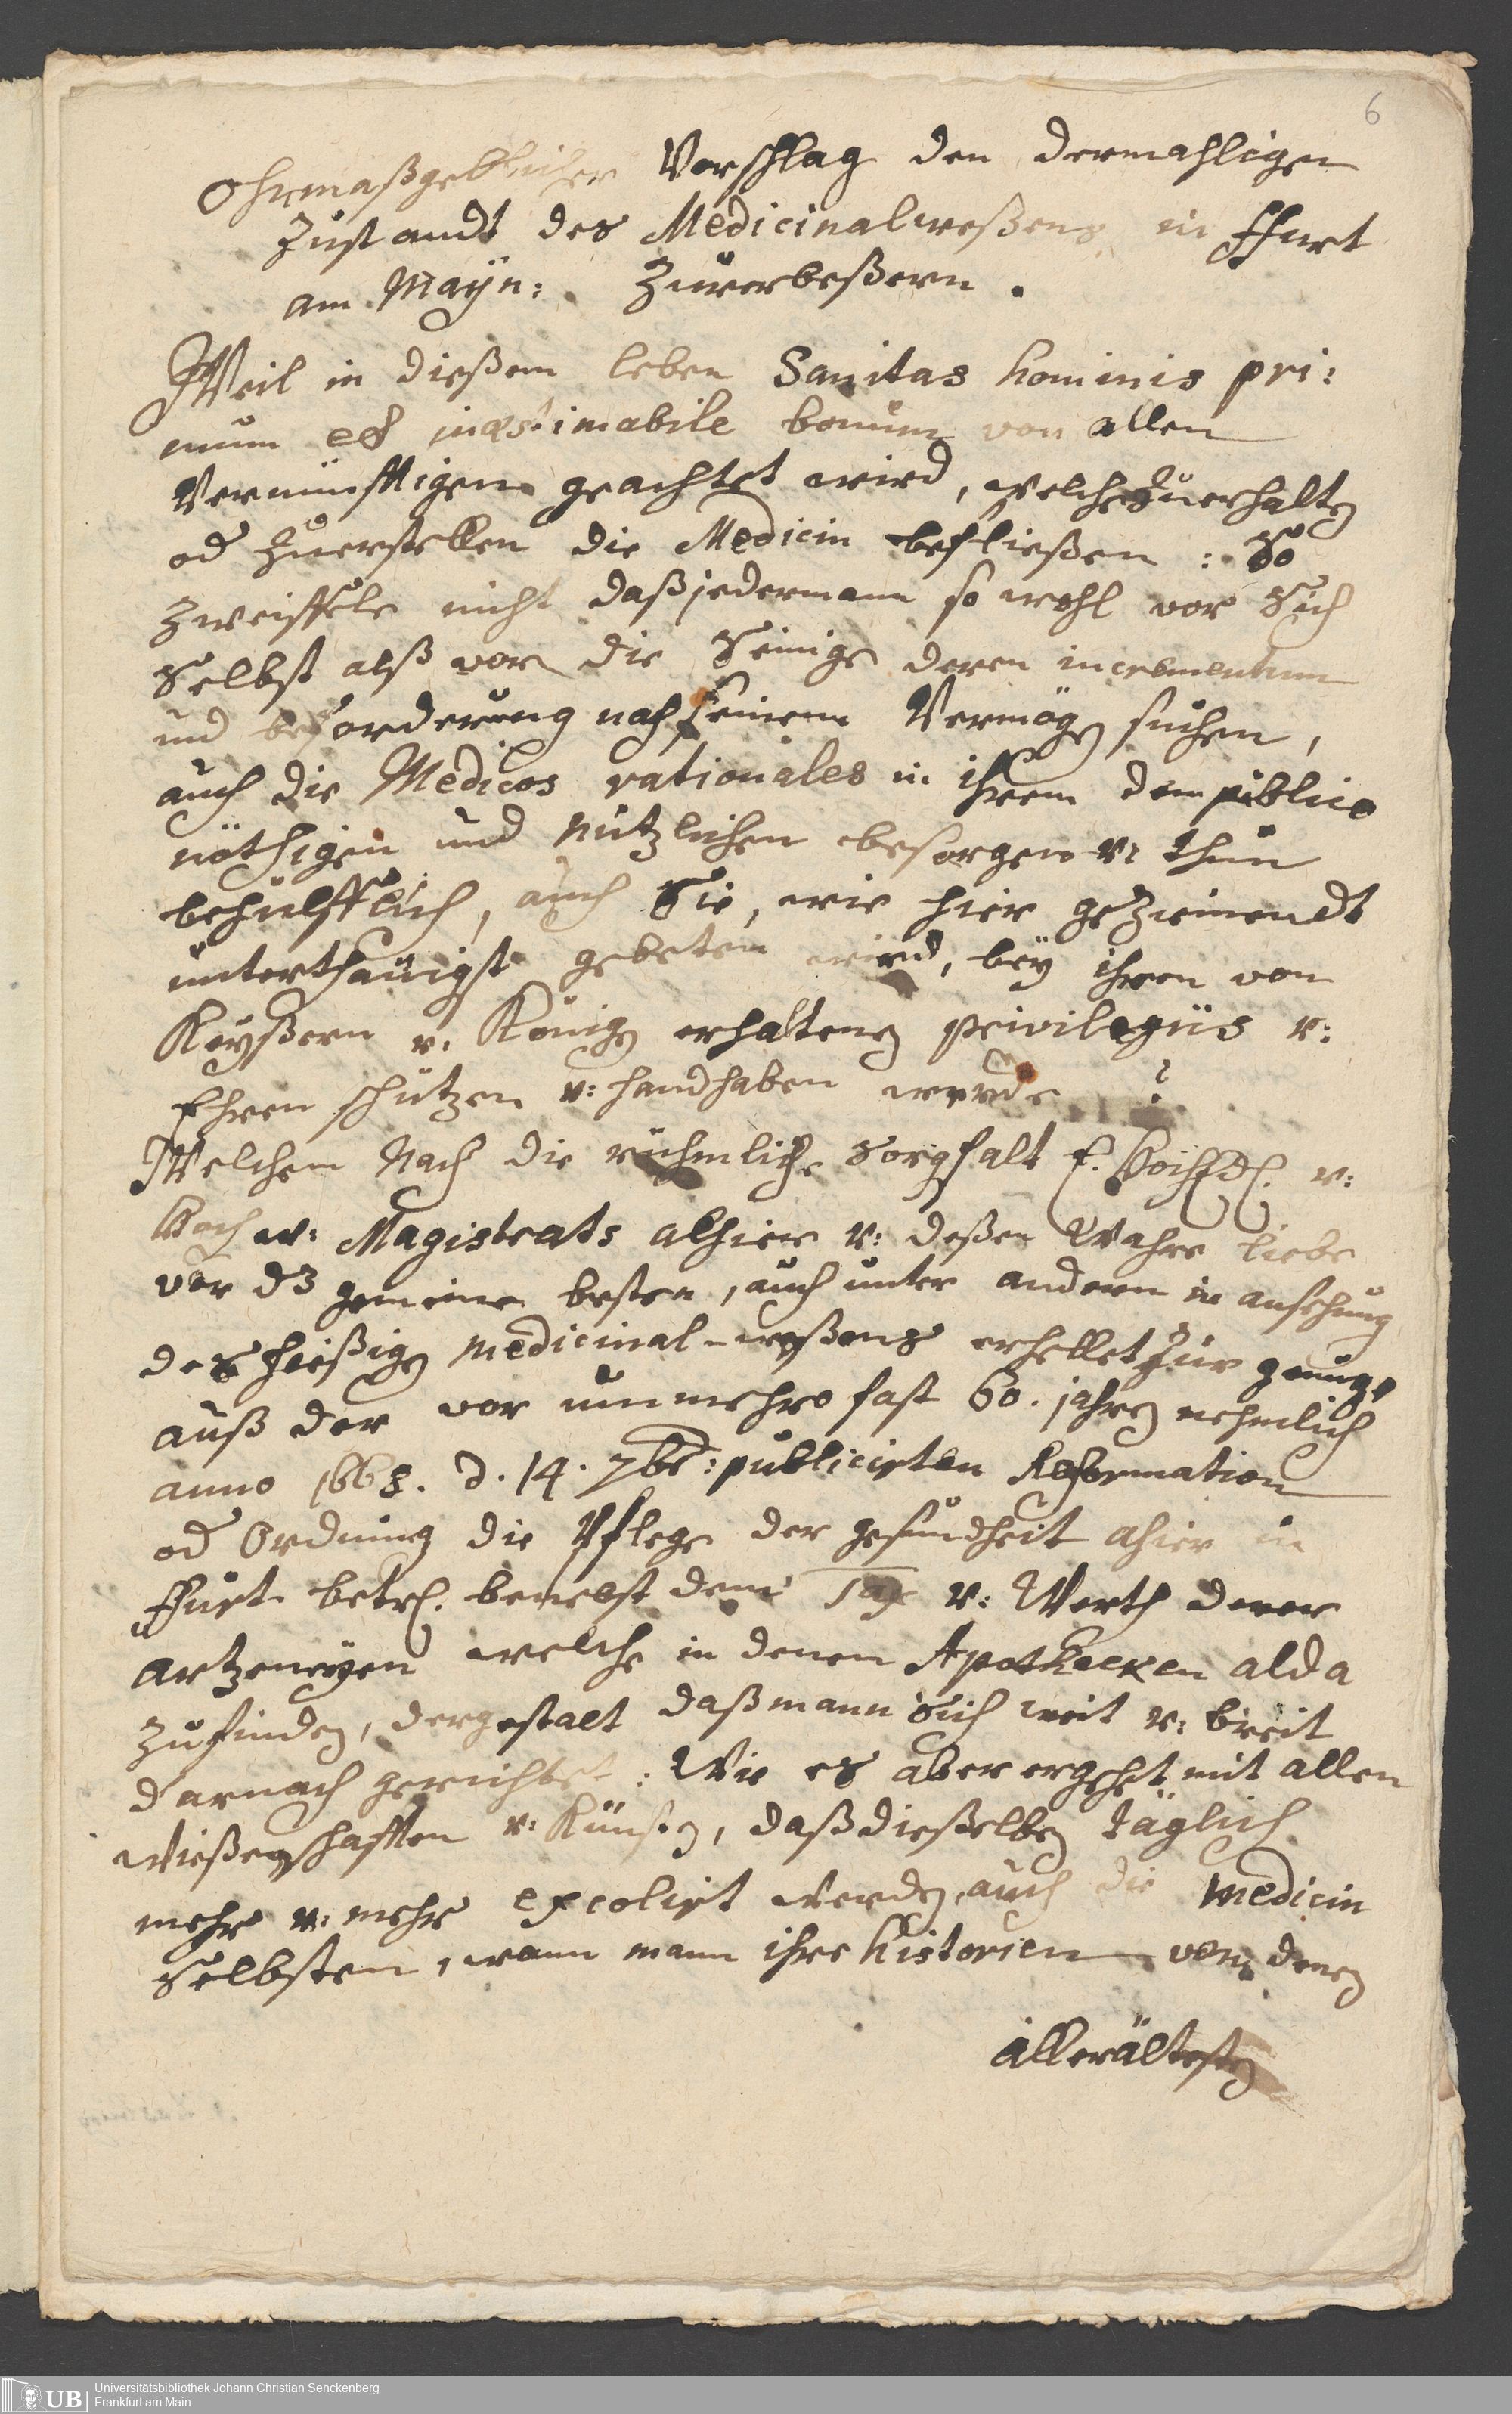 6
Ohnmaßgeblicher Vorschlag den dermahligen
Zustandt des Medicinalweßens in Ffurt
am Mayn: Zuverbeßern.
Weil in dießem leben Sanitas hominis pri:
mum et inæstimabile bonum von allen
Vernünfftigen geachtet wird, welche Zuerhalten
od Zuerstellen die Medicin befließen: So
Zweiffele nicht daß jedermann so wohl vor Sich
Selbst alß vor die Seinige deren incrementum
und beforderung nach seinem Vermögen suchen,
auch die Medicos rationales in ihrem dem publico
nöthigen und Nützlichen besorgen v: thun
behülfflich, auch Sie, wie hier geziemendt
unterthänigst gebeten wird, bey ihren von
Keyßern v. Königen erhaltenen privilegiis v:
Ehren schützen v: handhaben werde?
Welchem Nach die rühmliche Sorgfalt E. HochEdl. v:
Hoch w: Magistrats alhier v: deßen Wahre liebe
vor dz gemeine besten, auch unter andern in ansehung
des hießigen medicinal-weßens erhellet Zur genüge,
auß der vor nunmehro fast 60. jahren nehmlich
anno 1668. d. 14. 7br: publicirten Reformation
od Ordnung die Pflege der gesundheit ahier in
Ffurt betrf. benebst dem Tax v: Werth derer
artzeneyen welche in denen Apothecken alda
Zufinden, dergestalt daß mann Sich weit v: breit
darnach gerichtet: Wie es aber ergehet mit allen
Wießenschafften v: Künsten, daß dießelben täglich
mehr v: mehr excolirt werden, auch die Medicin
Selbsten, wann mann ihre historien von denen
allerältesten
UB Universitätsbibliothek Johann Christian Senckenberg
Frankfurt am Main